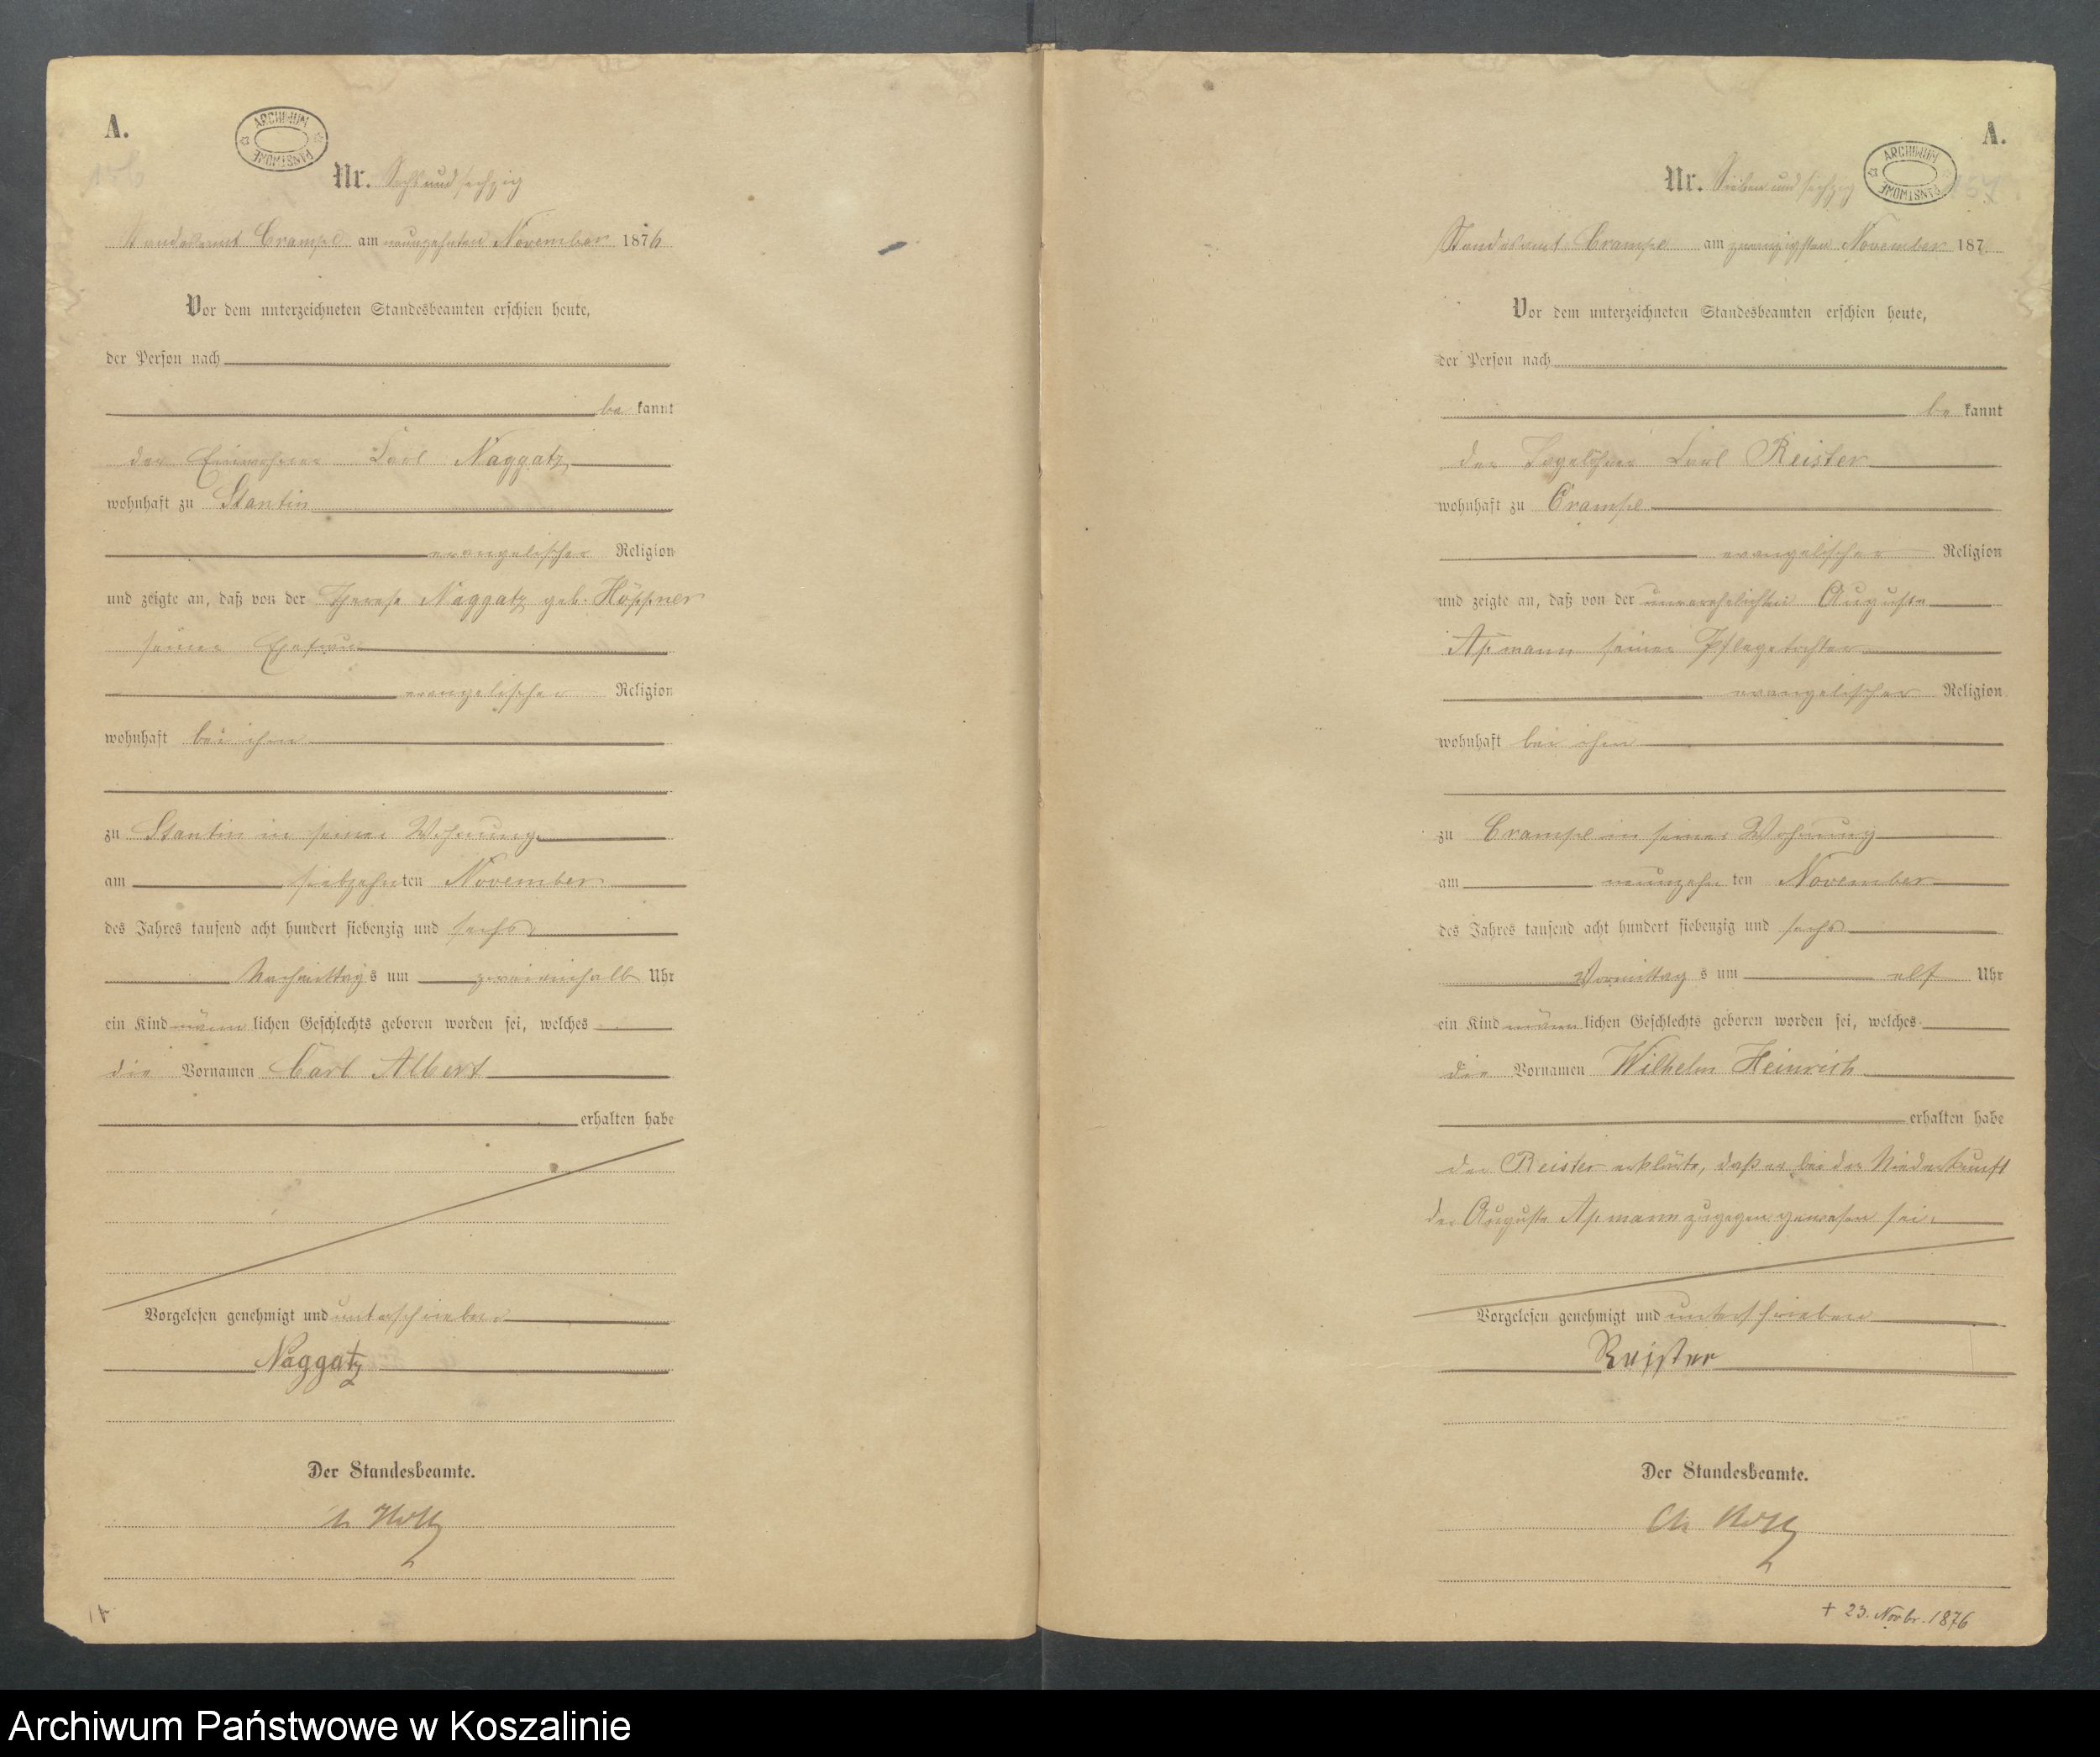 A.
ARCHIWUM PAŃSTWOWE
Nr. Sechsundsechzig
Standesamt Crampe am neunzehnten November 1876
Vor dem unterzeichneten Standesbeamten erschien heute,
der Person nach
bekannt
der Einwohner Carl Naggatz
wohnhaft zu Stantin
evangelischer Religion
und zeigte an, daß von der Therese Naggatz geb. Höppner
seiner Ehefrau
evangelischer Religion
wohnhaft bei ihm
zu Stantin in seiner Wohnung
am siebzehnten November
des Jahres tausend acht hundert siebenzig und sechs
Nachmittags um zweieinhalb Uhr
ein Kind männlichen Geschlechts geboren worden sei, welches
die Vornamen Carl Albert
erhalten habe
Vorgelesen genehmigt und unterschrieben
Naggatz
Der Standesbeamte.
A.
ARCHIWUM PAŃSTWOWE
Nr. Siebenundsechzig
Standesamt Crampe am zwanzigsten November 187
Vor dem unterzeichneten Standesbeamten erschien heute,
der Person nach
bekannt
der Tagelöhner Carl Reister
wohnhaft zu Crampe
evangelischer Religion
und zeigte an, daß von der unverehelichten Auguste
Aßmann seiner Pflegetochter
evangelischer Religion
wohnhaft bei ihm
zu Crampe in seiner Wohnung
am neunzehnten November
des Jahres tausend acht hundert siebenzig und sechs
Vormittags um elf Uhr
ein Kind männlichen Geschlechts geboren worden sei, welches
die Vornamen Wilhelm Heinrich
erhalten habe
der Reister erklärte, daß er bei der Niederkunft
der Auguste Aßmann zugegen gewesen sei.
Vorgelesen genehmigt und unterschrieben
Reister
Der Standesbeamte.
+ 23. Novbr. 1876
Archiwum Państwowe w Koszalinie